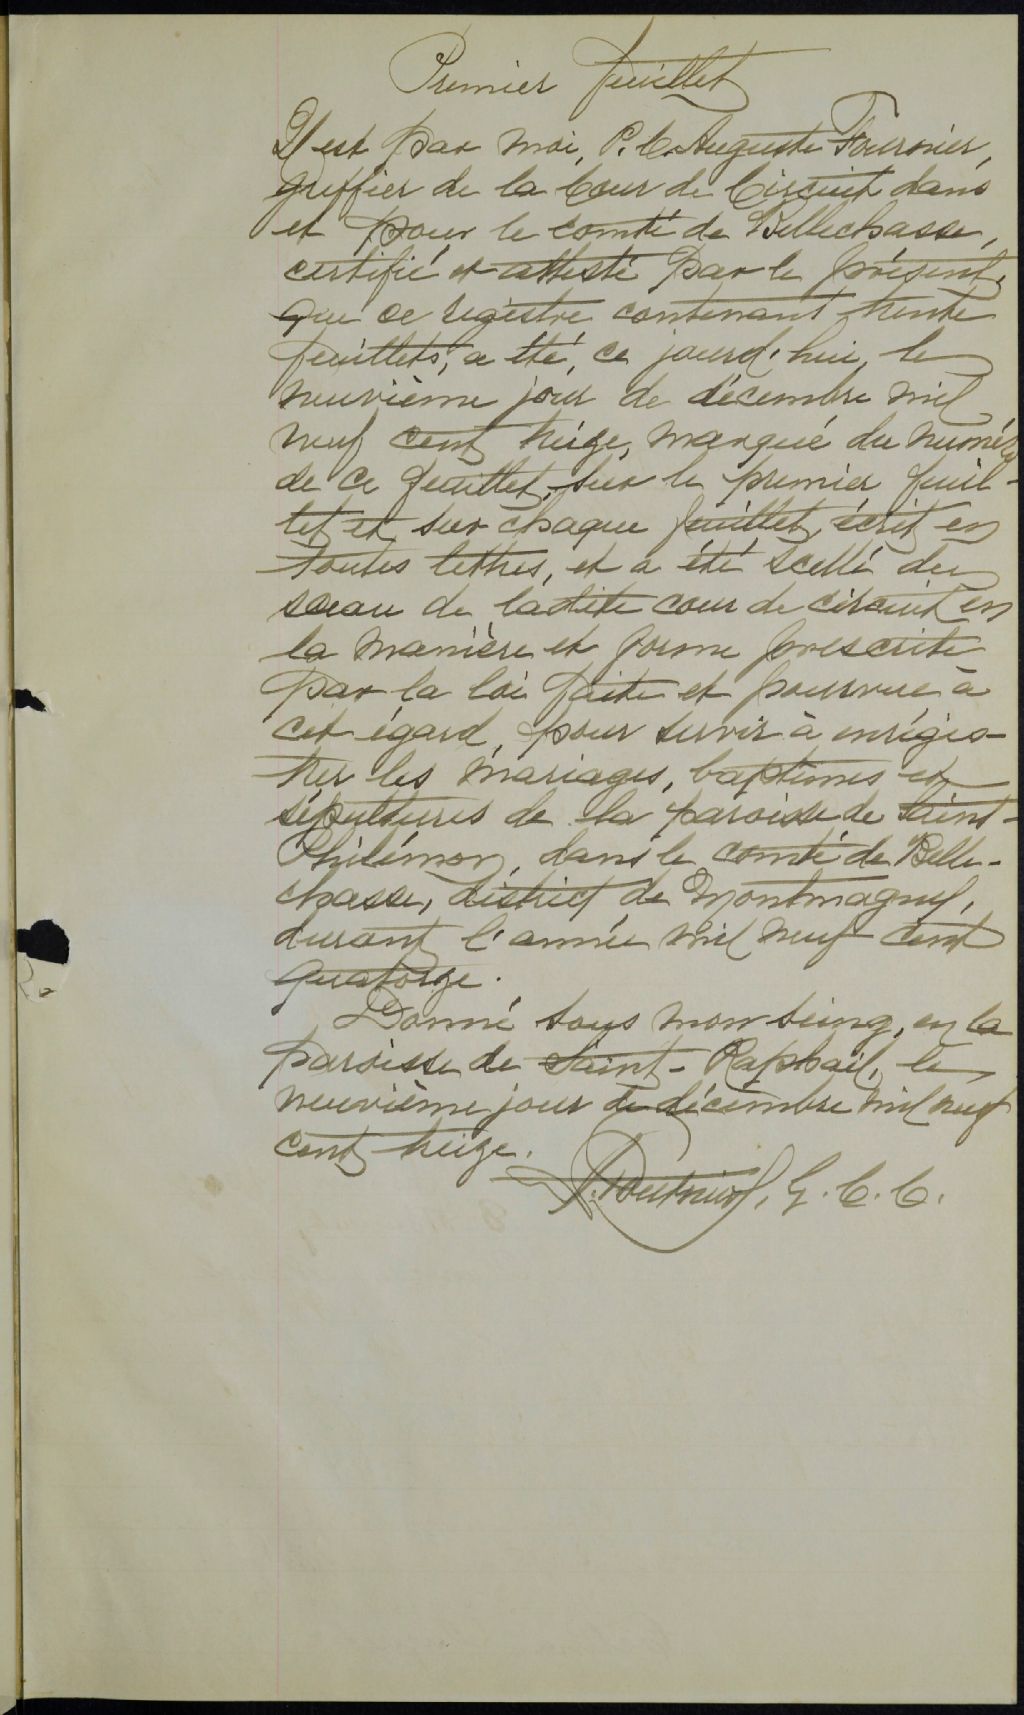 Premier feuillet
Il est par moi, P. C. Auguste Fournier,
greffier de la Cour de Circuit dans
et pour le comté de Bellechasse,
certifié et attesté par le présent,
que ce régistre contenant trente
feuillets, a été, ce jourd'hui, le
neuvième jour de décembre mil
neuf cent treize, marqué du numéro
de ce feuillet, sur le premier feuil-
let et sur chaque feuillet, écrit en
toutes lettres, et a été scellé du
sceau de ladite cour de circuit en
la manière et forme prescrite
par la loi faite et pourvue à
cet égard, pour servir à enrégis-
trer les mariages, baptêmes et
sépultures de la paroisse de Saint-
Philémon, dans le comté de Belle-
chasse, district de Montmagny,
durant l'année mil neuf cent
quatorze.
Donné sous mon seing, en la
paroisse de Saint-Raphaël, le
neuvième jour de décembre mil neuf
cent treize.
G. C. C.